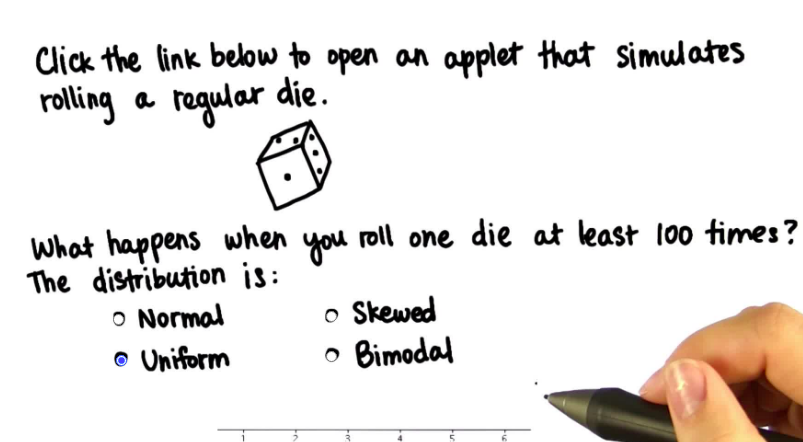 Click the link below to open an applet that simulates
rolling a regular die.
What happens when you roll one die at least 100 times?
The distribution is:
Normal Skewed
Uniform Bimodal
1 2 3 4 5 6